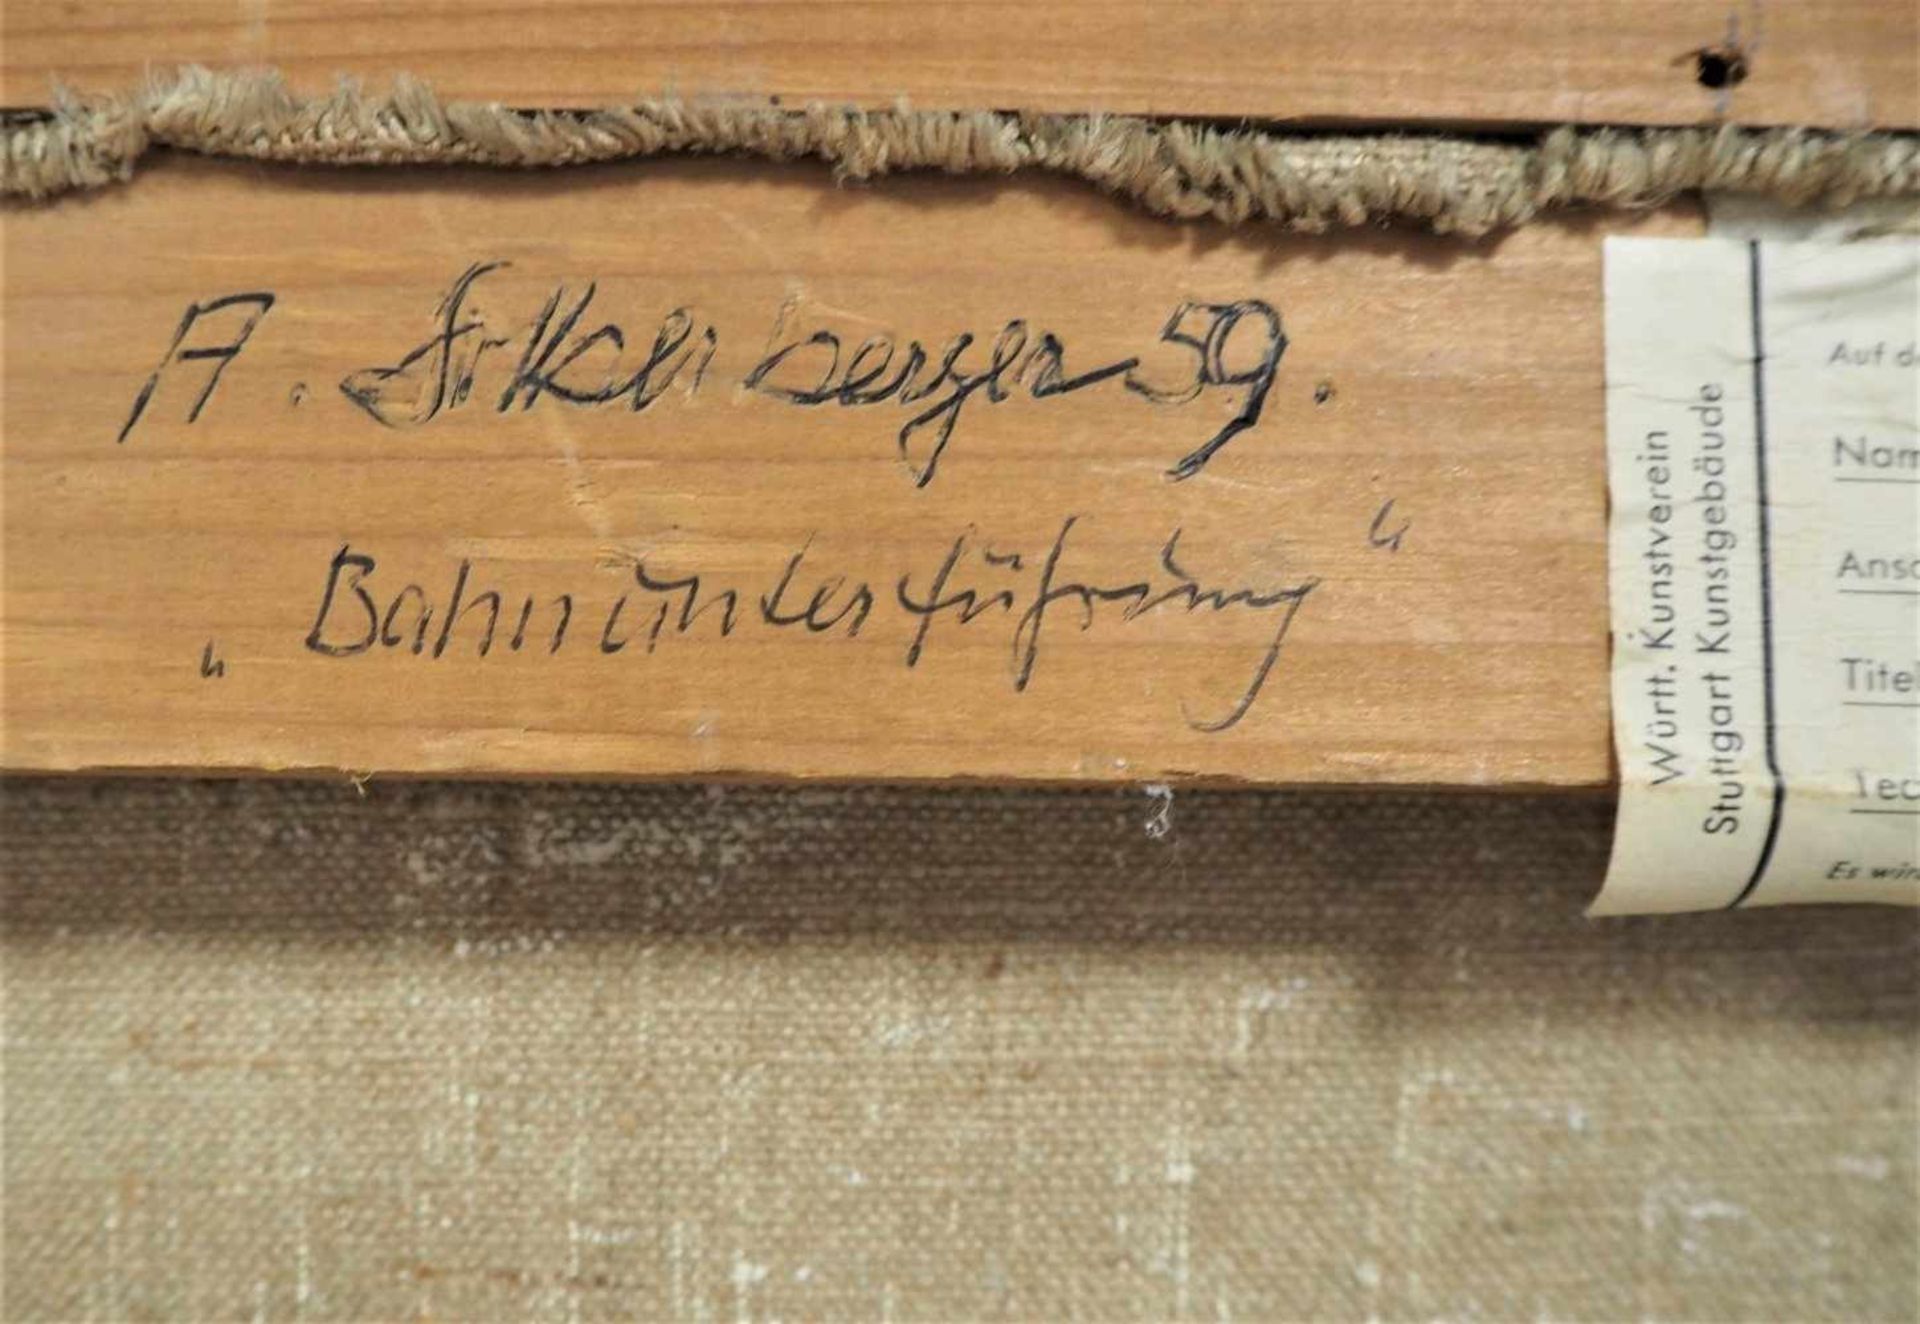 A. Sickenberger 59.
„Bahnunterführung“
Württ. Kunstverein
Stuttgart Kunstgebäude
Auf d
Nam
Ansc
Titel
Tec
Es wird